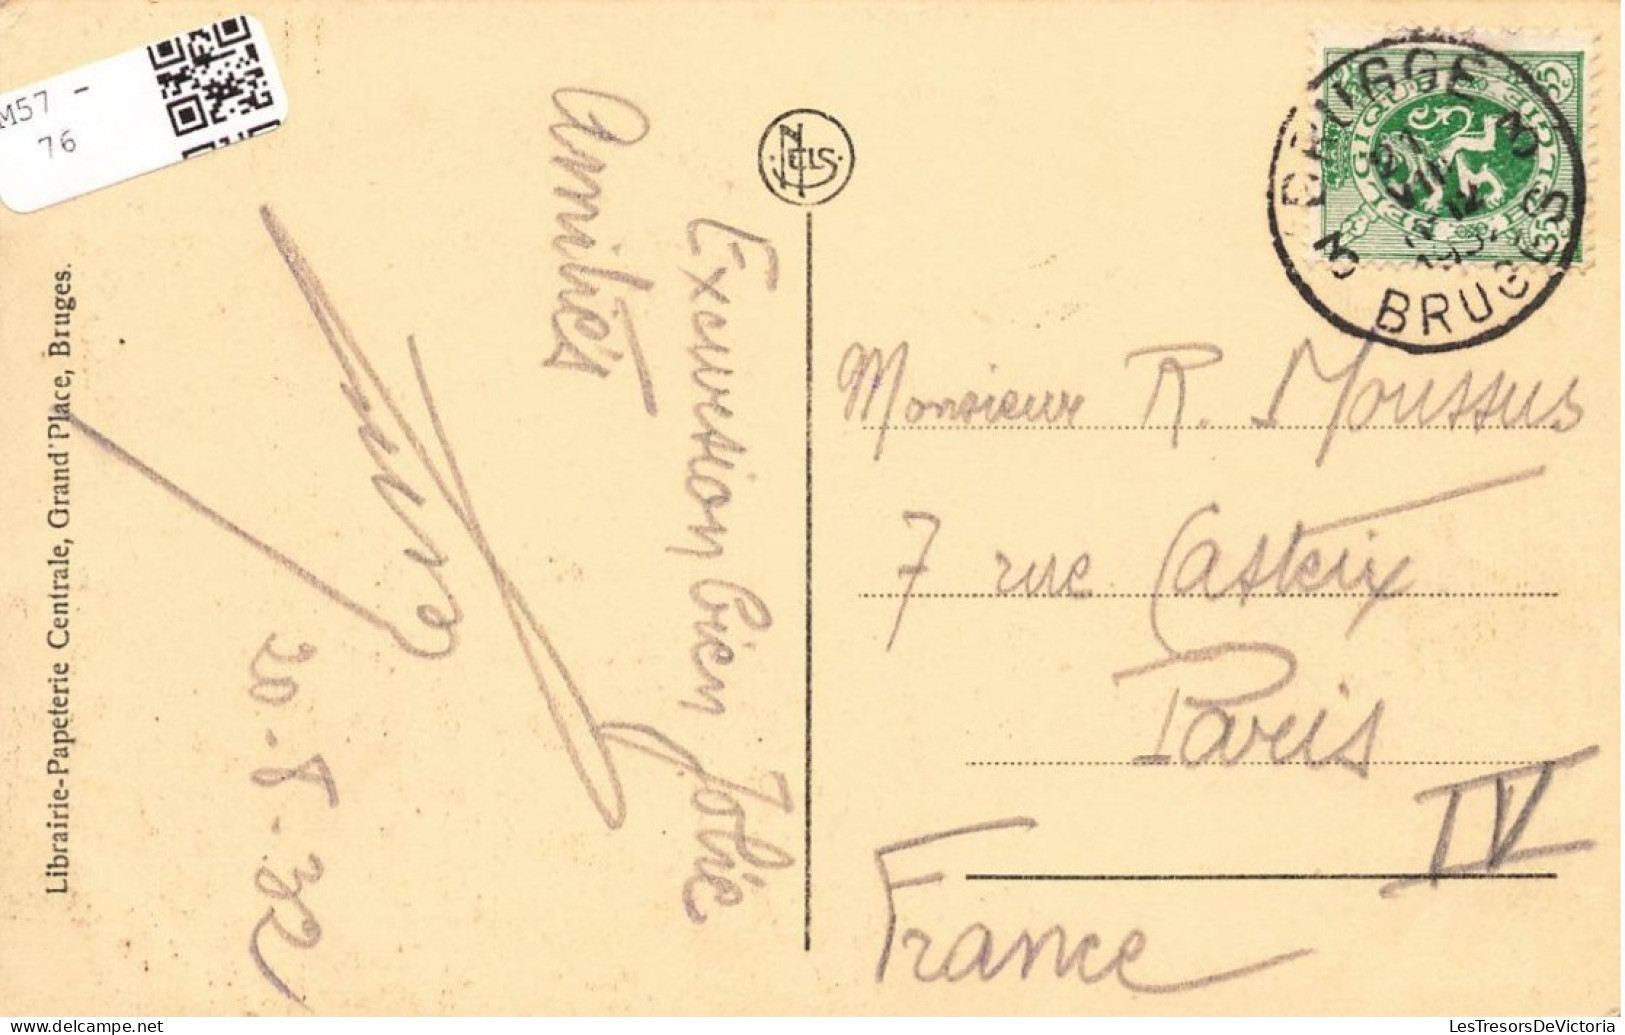 M57 -
76
Librairie-Papeterie Centrale, Grand'Place, Bruges.
NELS
BRUGGE 3
3 BRUGES
BELGIQUE
BELGIE
35
Excursion bien jolie
amitiés
20-8-32
Monsieur R. Moussus
7 rue Casteix
Paris
IV
France
delcampe.net
LesTresorsDeVictoria